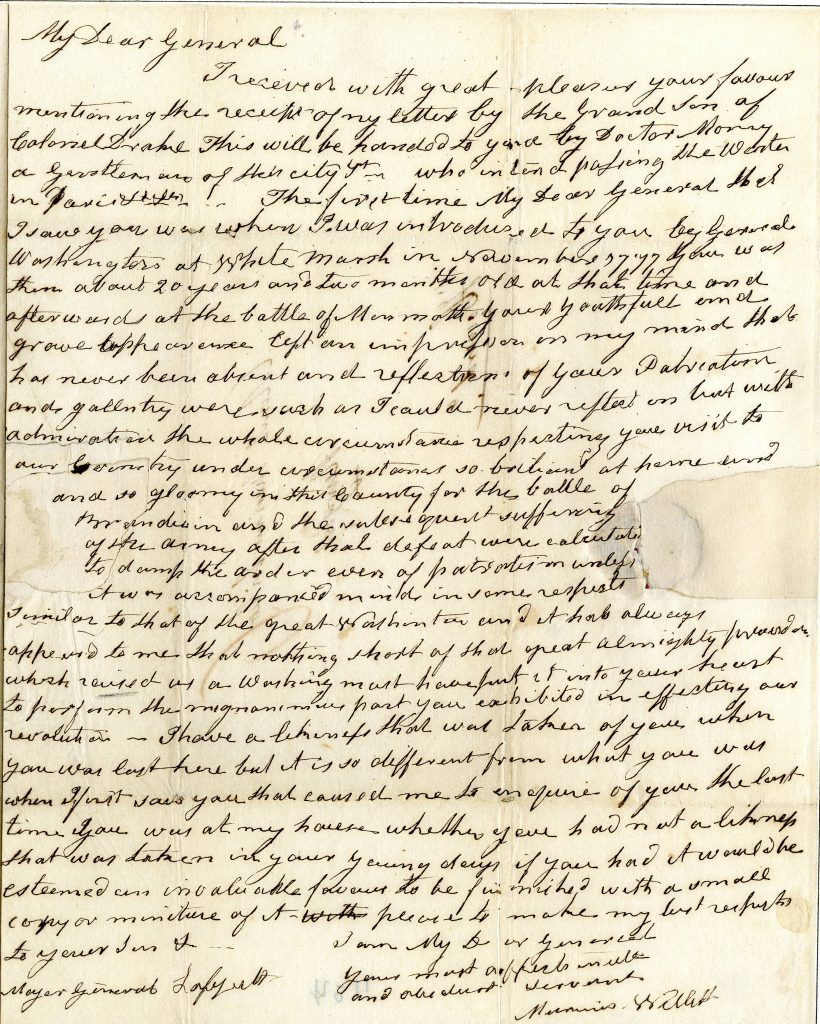 My Dear General
I received with great pleasuer your favour
mentioning the receipt of my letter by the Grand Son of
Colonel Drake This will be handed to you by Doctor
a Gentleman of this city who intend passing the Winter
in Paris The first time My Dear General that
I saw you was when I was introdused to you by General
Washington at White Marsh in November 1777 You was
then about 20 years and two months old at that time and
afterwards at the battle of Monmoth Your Youthfull and
grave appearence left an impression on my mind that
has never been absent and reflections of your Patriotism
and gallentry were such as I could never reflect on but with
admiration the whole circumstance respecting your visit to
our Country under circumstances so briliant at home and
and so gloomy in this County for the battle of
and the subsequent suffering
of the armey after that defeat were calculated
to damp the arder even of patriotism unless
it was accompanied minds in some respects
similar to that of the great Washinton and it hab always
appeard to me that nothing short of that great almighty
which raised us a Washing must have put it into your heart
to perform the part you exhibited in effecting our
revolution — I have a likeness that was taken of you when
you was last here but it is so different from what you was
when I first saw you that caused me to enquire of you the last
time You was at my house whether you had not a likeness
that was taken in your young days if you had it would be
esteemed an invaluable favour to be furnished with a small
copy or minture of it with please to make my best respects
to your Son &
I am My Dear General
Your most affectionate
and obedient servant
Marinus Willett
Mager General Lafyett